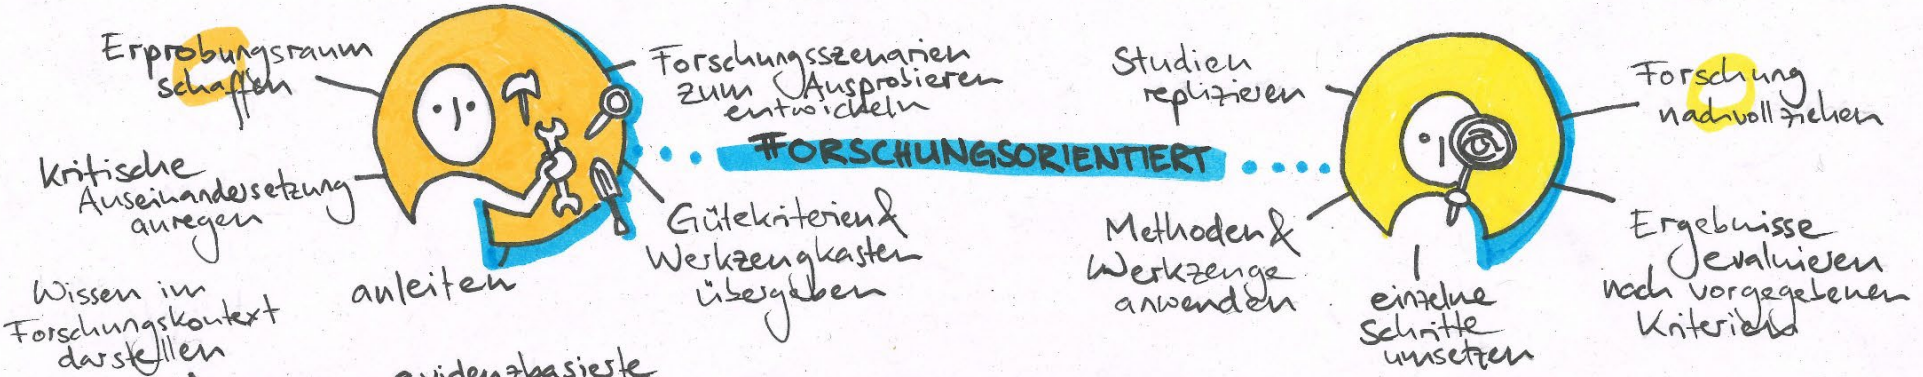 Erprobungsraum
schaffen
Kritische
Auseinandersetzung
anregen
Wissen im
Forschungskontext
darstellen
anleiten
evidenzbasierte
Forschungsszenarien
zum Ausprobieren
entwickeln
Gütekriterien &
Werkzeugkasten
übergeben
FORSCHUNGSORIENTIERT
Studien
replizieren
Methoden &
Werkzeuge
anwenden
einzelne
Schritte
umsetzen
Forschung
nachvollziehen
Ergebnisse
evaluieren
nach vorgegebenen
Kriterien